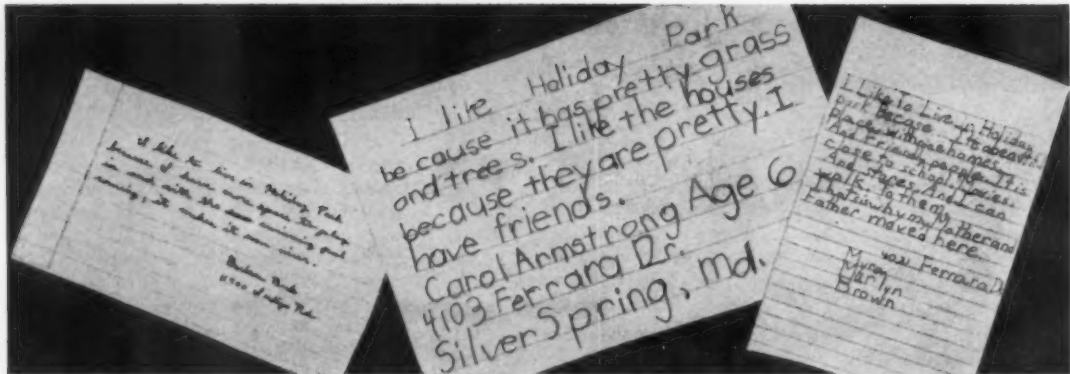 I like to live in Holiday Park
because I have more space to play
in and with the
it makes it
I like Holiday Park
be cause it has pretty grass
and trees. I like the houses
because they are pretty. I
have friends.
Carol Armstrong Age 6
4103 Ferrara Dr.
Silver Spring, Md.
I Like to Live in Holiday
park Because
Place with homes
And Friendly people. It is
close to school, Movies,
And stores. And I can
walk to them.
That's why my Mother and
Father moved here.
Ferrara D
Marlyn
Brown